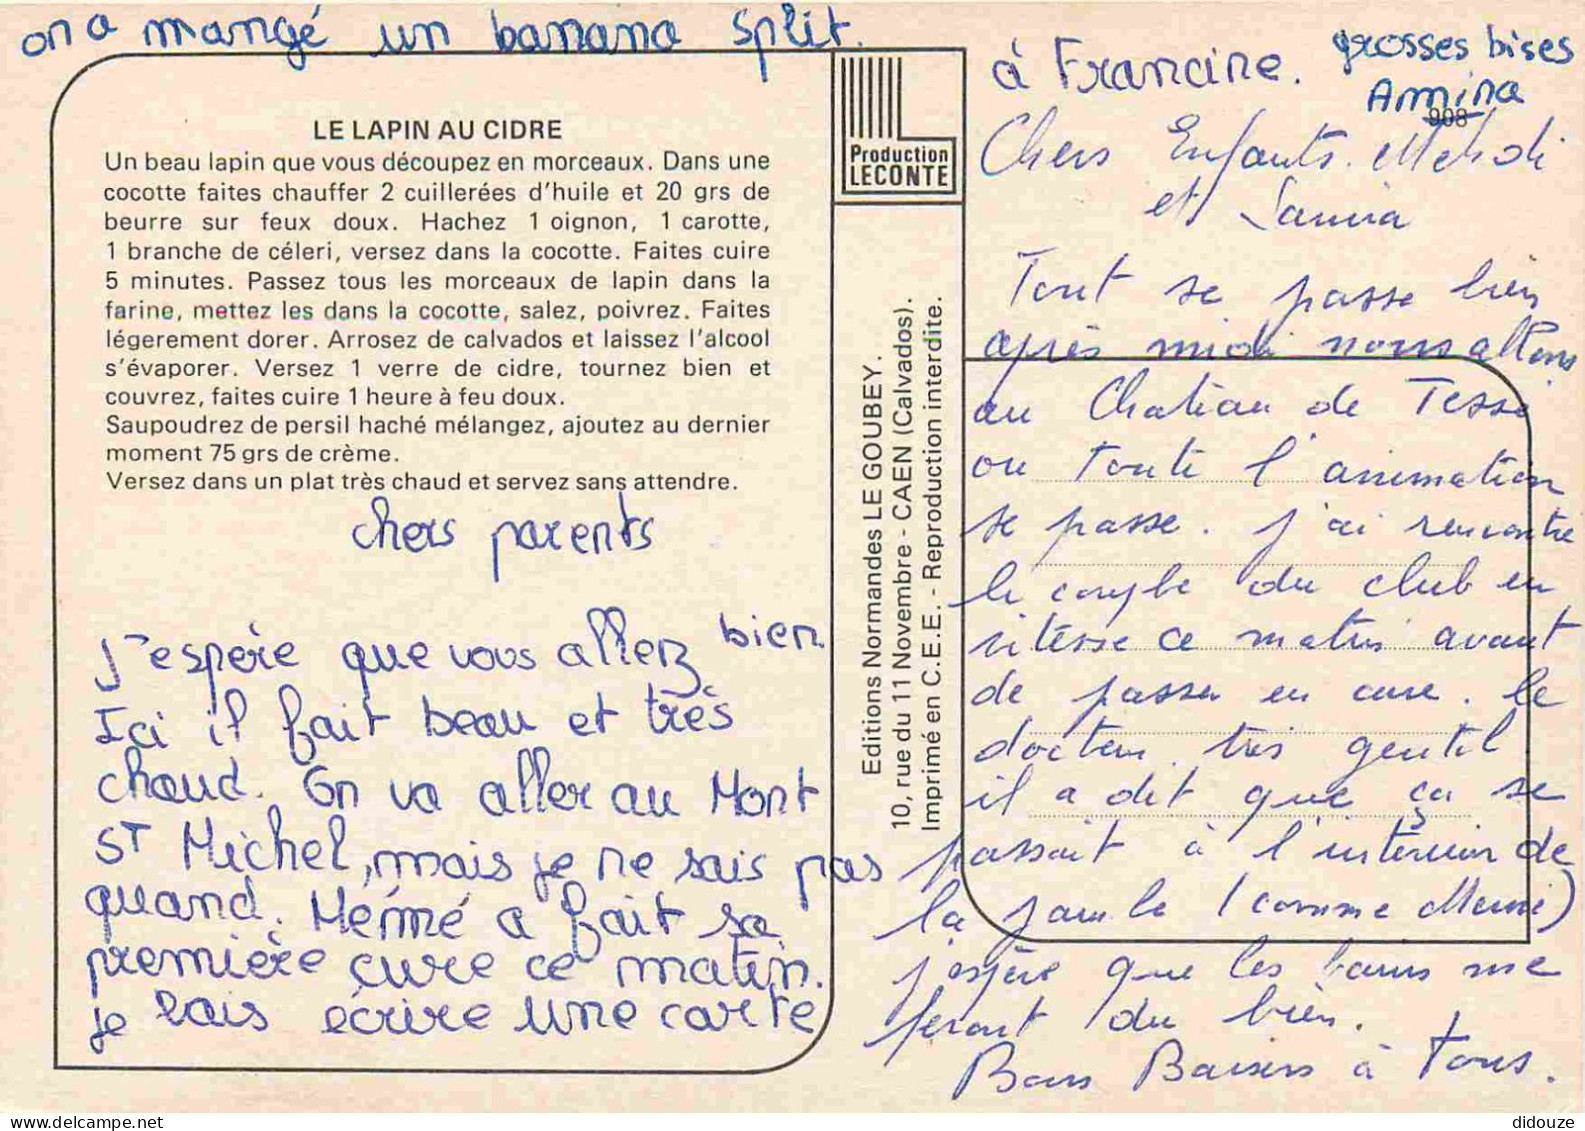 on a mangé un banana split.
LE LAPIN AU CIDRE
Un beau lapin que vous découpez en morceaux. Dans une
cocotte faites chauffer 2 cuillerées d'huile et 20 grs de
beurre sur feux doux. Hachez 1 oignon, 1 carotte,
1 branche de céleri, versez dans la cocotte. Faites cuire
5 minutes. Passez tous les morceaux de lapin dans la
farine, mettez les dans la cocotte, salez, poivrez. Faites
légerement dorer. Arrosez de calvados et laissez l'alcool
s'évaporer. Versez 1 verre de cidre, tournez bien et
couvrez, faites cuire 1 heure à feu doux.
Saupoudrez de persil haché mélangez, ajoutez au dernier
moment 75 grs de crème.
Versez dans un plat très chaud et servez sans attendre.
chers parents
J'espère que vous allez bien
Ici il fait beau et très
chaud. On va aller au Mont
ST Michel, mais je ne sais pas
quand. Mémé a fait sa
première cure ce matin.
je vais écrire une carte
à Francine.
grosses bises
Amina
Production
LECONTE
Editions Normandes LE GOUBEY.
10, rue du 11 Novembre - CAEN (Calvados).
Imprimé en C.E.E. - Reproduction interdite.
908
Chers Enfants. Mehdi
et Samia
Tout se passe bien
après midi nous allons
au Chateau de Tessé
ou toute l'animation
se passe. j'ai rencontré
le couple du club en
vitesse ce matin avant
de passer en cure. le
docteur très gentil
il a dit que ça se
passait à l'intérieur de
la jambe (comme Mémé)
j'espère que les bains me
feront du bien.
Bons Baisers à Tous.
didouze